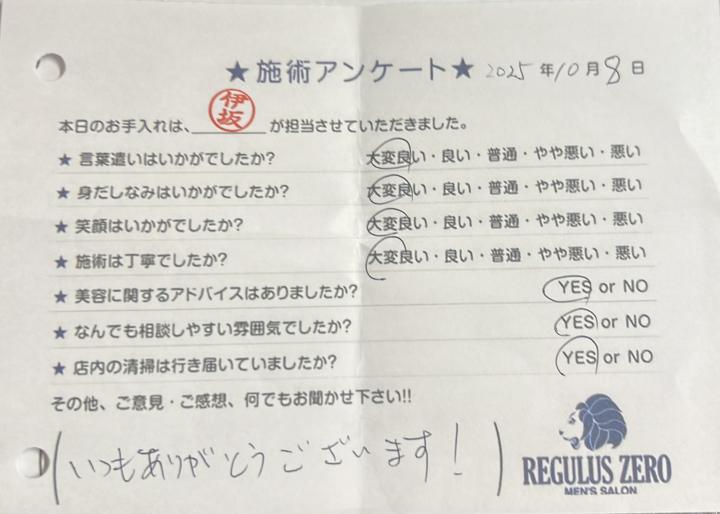 ★施術アンケート★ 2025年10月8日
本日のお手入れは、伊坂が担当させていただきました。
★ 言葉遣いはいかがでしたか? 大変良い・良い・普通・やや悪い・悪い
★ 身だしなみはいかがでしたか? 大変良い・良い・普通・やや悪い・悪い
★ 笑顔はいかがでしたか? 大変良い・良い・普通・やや悪い・悪い
★ 施術は丁寧でしたか? 大変良い・良い・普通・やや悪い・悪い
★ 美容に関するアドバイスはありましたか? YES or NO
★ なんでも相談しやすい雰囲気でしたか? YES or NO
★ 店内の清掃は行き届いていましたか? YES or NO
その他、ご意見・ご感想、何でもお聞かせ下さい!!
(いつもありがとうございます!)
REGULUS ZERO
MEN'S SALON